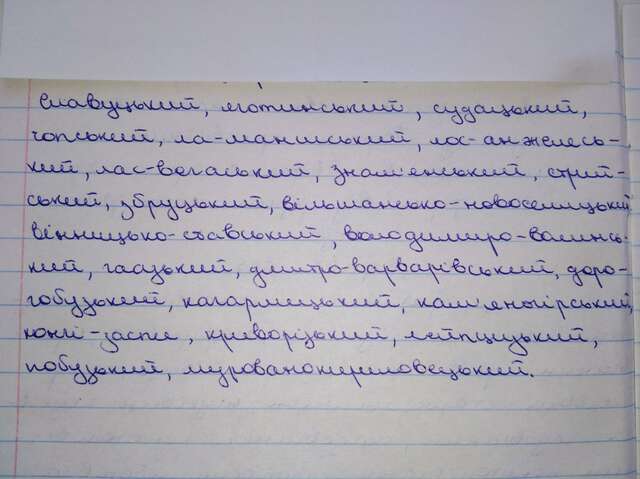 Славуцький, яготинський, судацький,
чопський, ла-маншський, лос-анжелесь-
кий, лас-вегаський, знам'янський, стрий-
ський, збруцький, вільшансько-новоселицький
вінницько-ставський, володимиро-волинсь-
кий, гаазький, дмитро-варварівський, доро-
гобузький, кагарлицький, кам'яногірський,
кончі-заспи, криворізький, лейпцизький,
побузький, мурованокуриловецький.